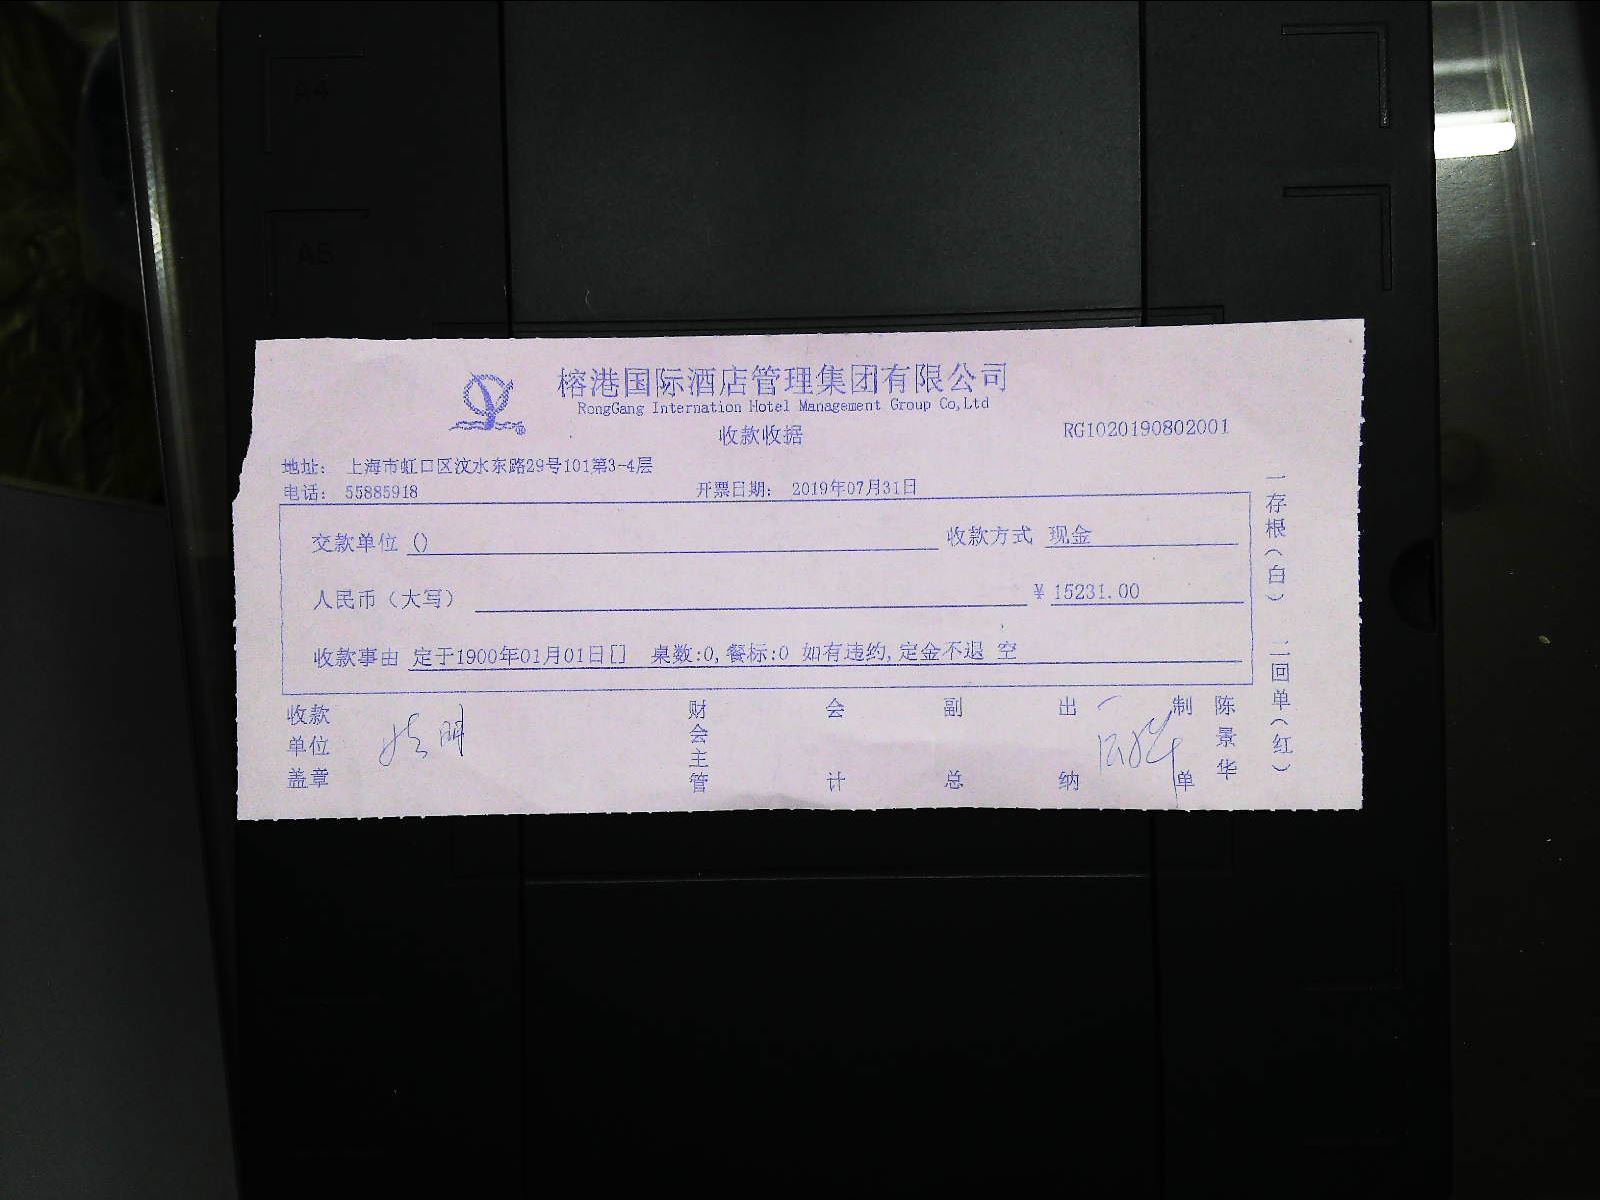 A4
A5
榕港国际酒店管理集团有限公司
RongGang Internation Hotel Management Group Co,Ltd
收款收据
RG1020190802001
地址： 上海市虹口区汶水东路29号101第3-4层
电话： 55885918 开票日期： 2019年07月31日
交款单位 () 收款方式 现金
人民币（大写） ¥ 15231.00
收款事由 定于1900年01月01日[] 桌数:0,餐标:0 如有违约,定金不退 空
收款单位盖章
财会主管
会计
副总
出纳
制单
陈景华
一存根（白） 二回单（红）